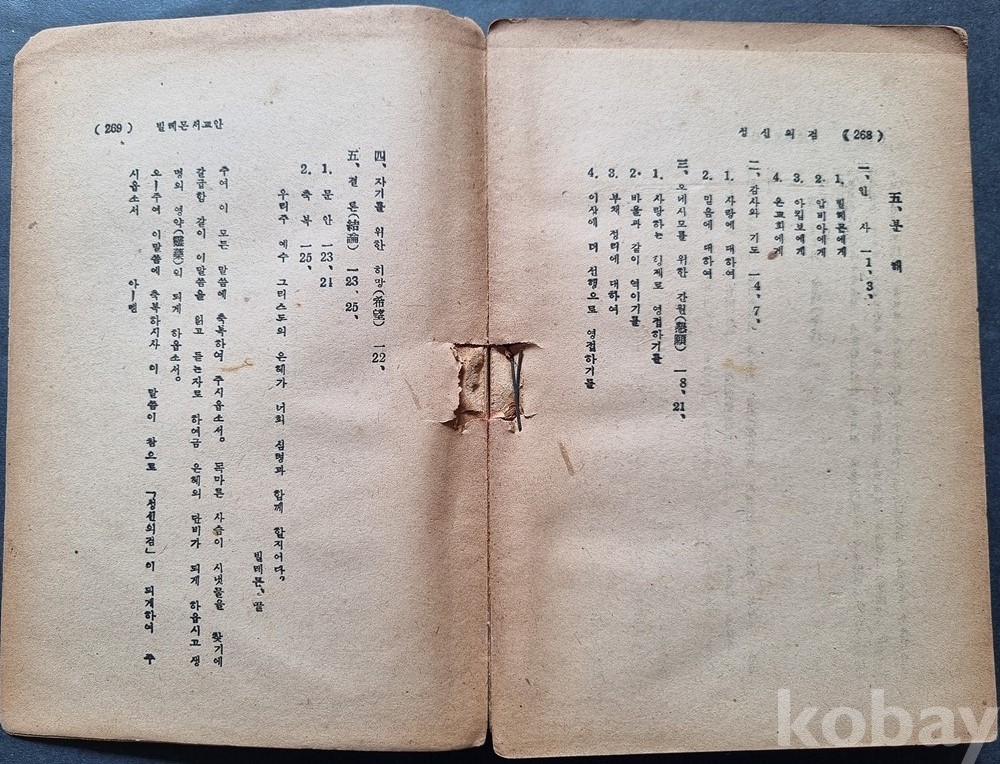 (268) 정신의점
五、분 해
一、인 사 一1、3、
1. 빌레몬에게
2. 압비아에게
3. 아킵보에게
4. 온교회에게
二、감사와 기도 一4、7、
1. 사랑에 대하여
2. 믿음에 대하여
三、오네시모를 위한 간원(懇願) 一8、21、
1. 사랑하는 형제로 영접하기를
2. 바울과 같이 역이기를
3. 부채 정리에 대하여
4. 이상에 더 선행으로 영접하기를
(269) 빌레몬서교안
四、자기를 위한 히망(希望) 一22、
五、결 론(結論) 一23、25、
1. 문 안 一23、21
2. 축 복 一25、
우리주 예수 그리스도의 은혜가 너희 심령과 함께 할지어다。
빌레몬、끝
주여 이 모든 말씀에 축복하여 주시옵소서。 목마른 사슴이 시냇물을 찾기에
갈급함 같이 이말씀을 읽고 듣는자로 하여금 은혜의 단비가 되게 하옵시고 생
명의 영약(靈藥)의 되게 하옵소서。
오ㅣ주여 이말씀에 축복하시사 이 말씀이 참으로 「정신의점」이 되게하여 주
시옵소서 아ㅣ멘
kobay